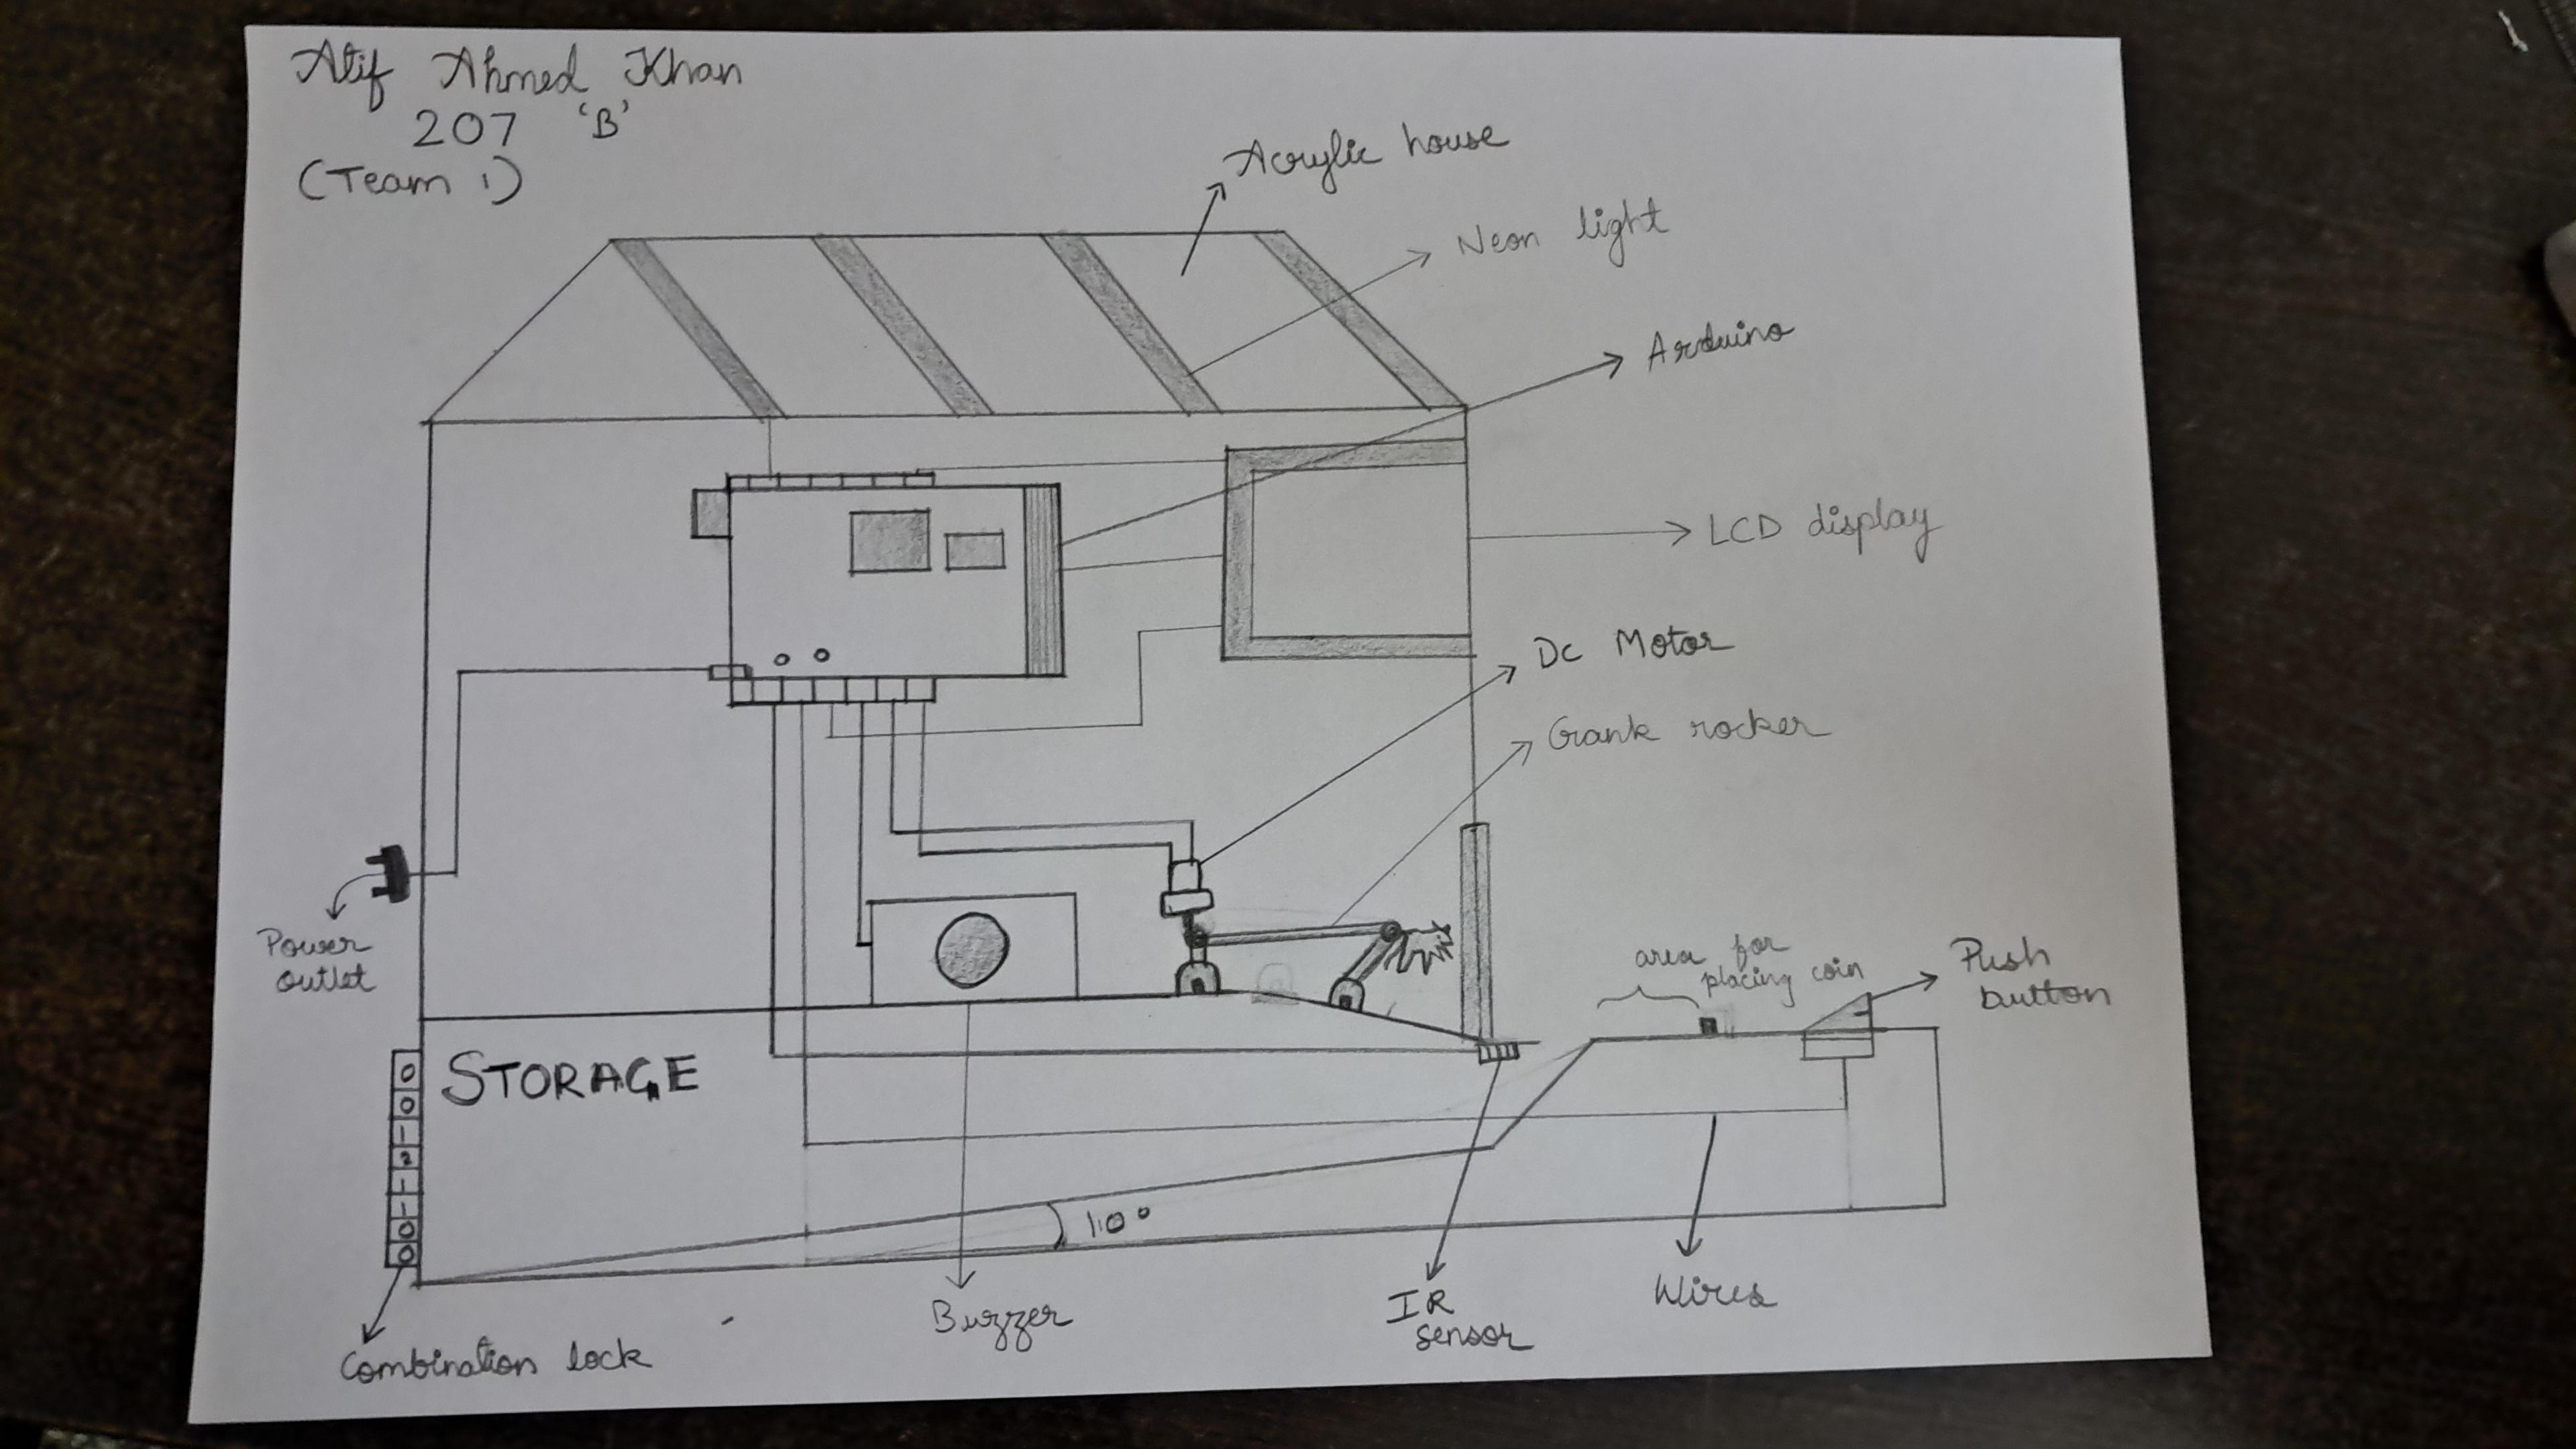 Atif Ahmed Khan
207 'B'
(Team 1)
Acrylic house
Neon light
Arduino
LCD display
Dc Motor
Crank rocker
Power
outlet
area for
placing coin
Push
button
STORAGE
0
0
1
2
1
1
0
0
110°
Buzzer
IR
sensor
Wires
Combination lock